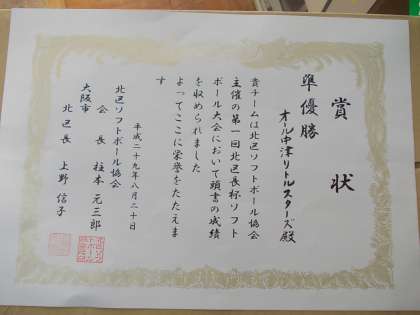 賞状
準優勝
オール中津リトルスターズ殿
貴チームは北区ソフトボール協会
主催の第一回北区長杯ソフト
ボール大会において頭書の成績
を収められました
よってここに栄誉をたたえま
す
平成二十九年八月二十日
北区ソフトボール協会
会長 柱本元三郎
大阪市
北区長 上野信子